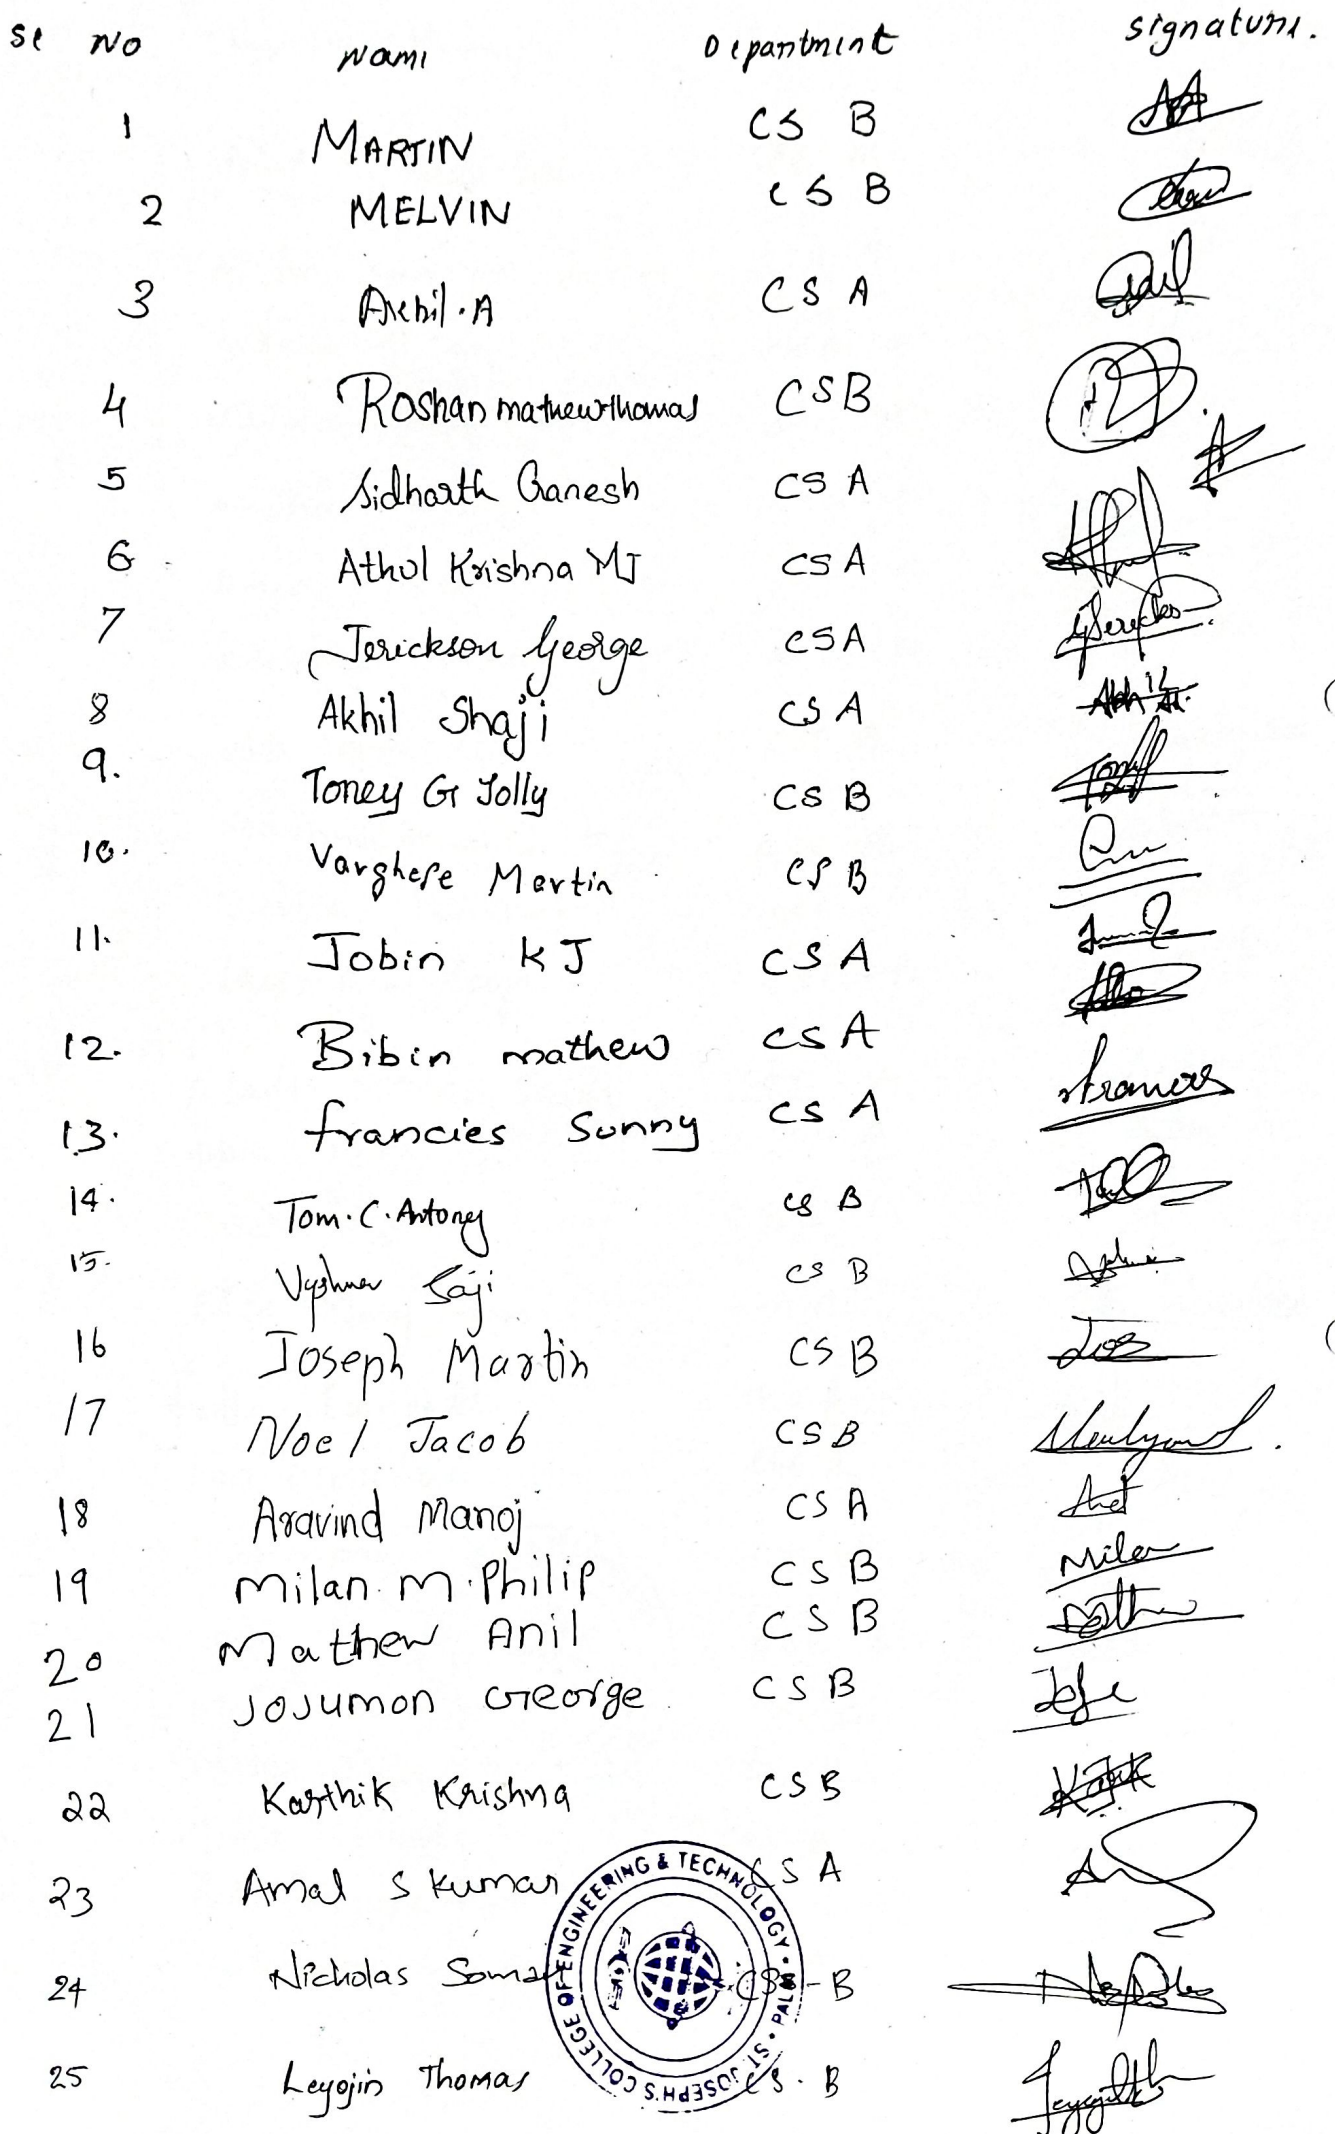 Sl No Name Department Signature.
1 MARTIN CS B
2 MELVIN CS B
3 Akhil.A CS A
4 Roshan mathewthomas CSB
5 Sidharth Ganesh CS A
6 Athul Krishna MJ CS A
7 Jerickson George CSA
8 Akhil Shaji CS A
9. Toney G Jolly CS B
10. Varghese Martin CS B
11. Jobin K J CS A
12. Bibin mathew CS A
13. francies Sunny CS A
14. Tom.C.Antony CS B
15. Vyshnav Saji CS B
16 Joseph Martin CS B
17 Noel Jacob CSB
18 Aravind Manoj CS A
19 Milan.M.Philip CSB Milan
20 Mathew Anil CSB
21 JOJUMON George CSB
22 Karthik Krishna CSB
23 Amal S Kumar CS A
24 Nicholas CS-B
25 Leyojin Thomas CS.B
ST. JOSEPH'S COLLEGE OF ENGINEERING & TECHNOLOGY